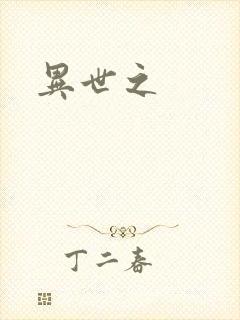 異世之
丁二春